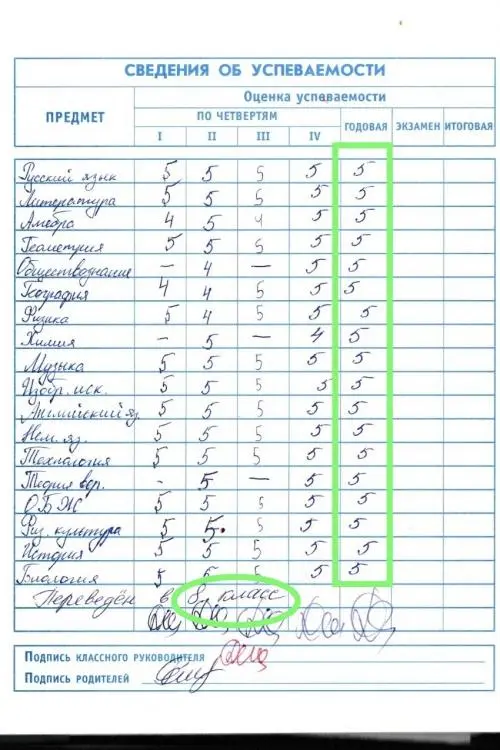 СВЕДЕНИЯ ОБ УСПЕВАЕМОСТИ
ПРЕДМЕТ Оценка успеваемости
ПО ЧЕТВЕРТЯМ ГОДОВАЯ ЭКЗАМЕН ИТОГОВАЯ
I II III IV
Русский язык 5 5 5 5 5
Литература 5 5 5 5 5
Алгебра 4 5 4 5 5
Геометрия 5 5 5 5 5
Обществознание — 4 — 5 5
География 4 4 5 5 5
Физика 5 4 5 5 5
Химия - 5 - 4 5
Музыка 5 5 5 5 5
Изобр. иск. 5 5 5 5 5
Английский яз. 5 5 5 5 5
Нем. яз. 5 5 5 5 5
Технология 5 5 5 5 5
Теория вер. - 5 — 5 5
ОБЖ 5 5 5 5 5
Физ. культура 5 5 5 5 5
История 5 5 5 5 5
Биология 5 5 5 5 5
Переведён в 8 класс
Подпись классного руководителя
Подпись родителей